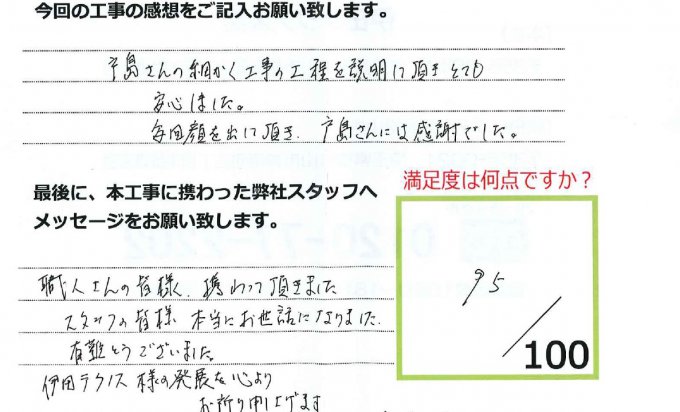 今回の工事の感想をご記入お願い致します。
戸島さんの細かく工事の工程を説明して頂きとても
安心しました。
毎回顔を出して頂き、戸島さんには感謝でした。
最後に、本工事に携わった弊社スタッフへ
メッセージをお願い致します。
満足度は何点ですか？
95
/100
職人さんの皆様、携わって頂きました
スタッフの皆様 本当にお世話になりました。
有難とうございました。
伊田テクノス様の発展を心より
お祈り申し上げます